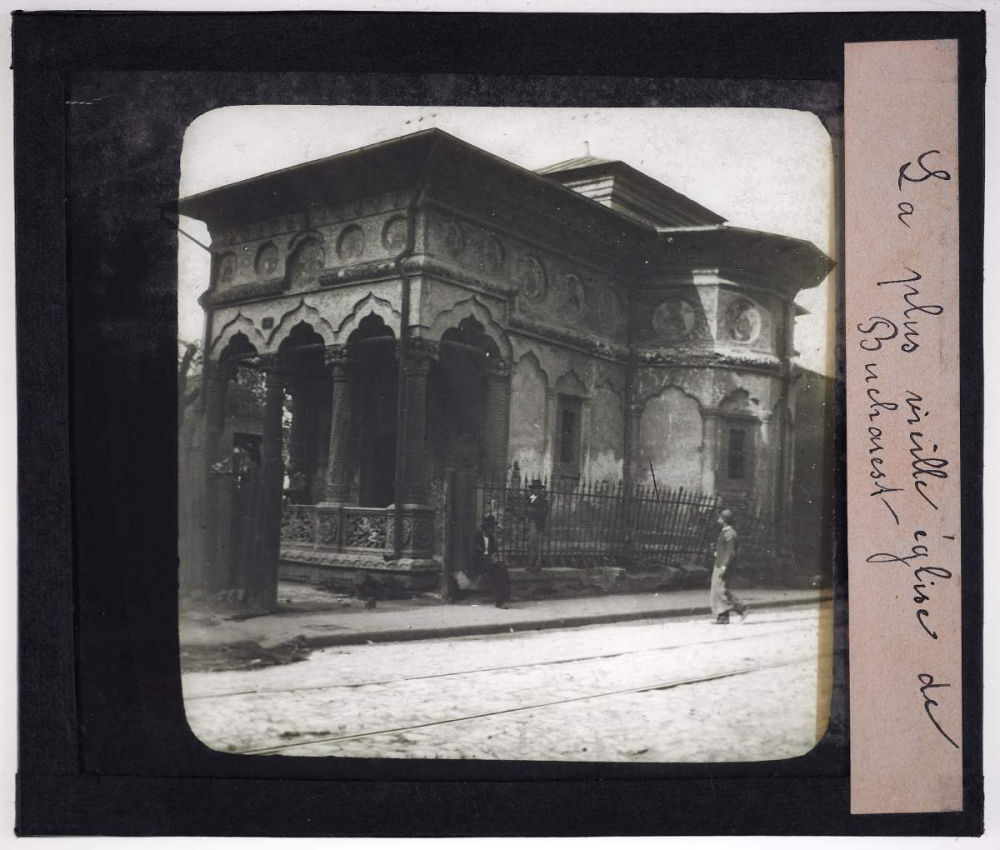 La plus vieille église de
Bucharest